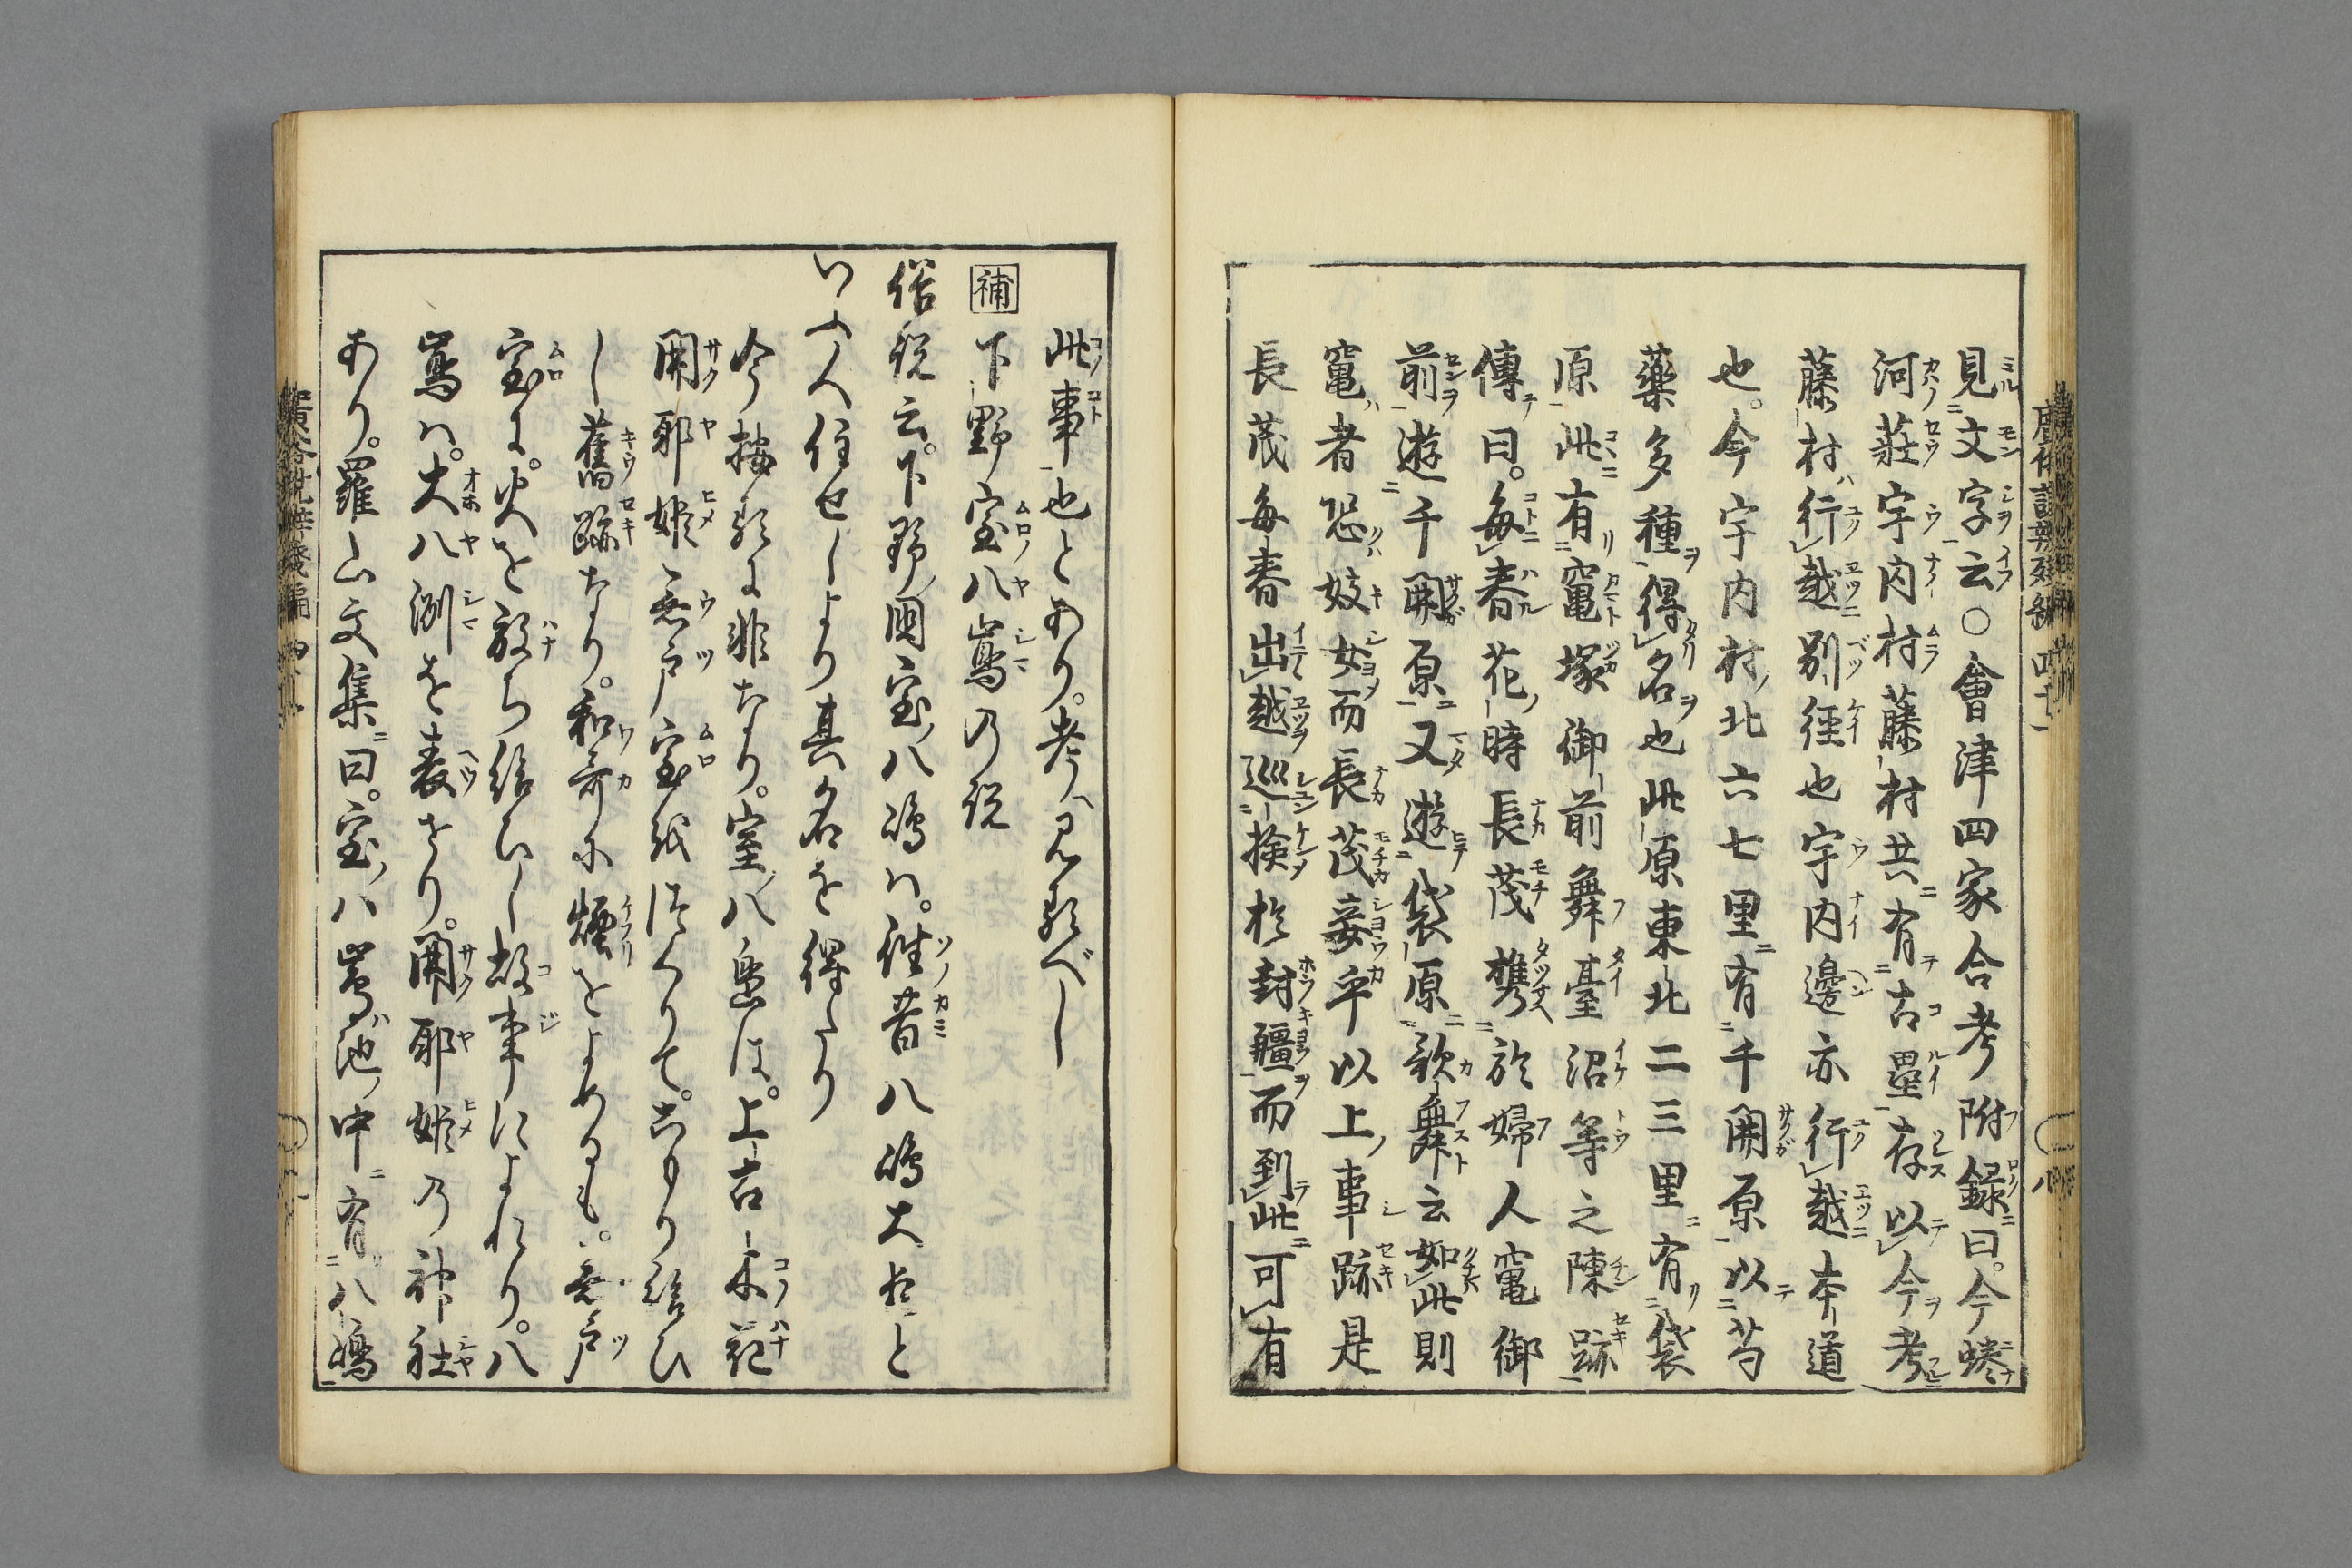 見文字云○會津四家合考附録曰。今蜷
河莊宇内村藤村共有古壘存以今考
藤村行越別徑也宇内邊亦行越本道
也。今宇内村北六七里有千開原以芍
藥多種得名也此原東北二三里有袋
原此有竃塚御前舞臺沼等之陳跡
傳曰。毎春花時長茂携於婦人竃御
前遊千開原又遊袋原歌舞云如此則
竃者恐妓女而長茂妾乎以上事跡是
長茂毎春出越巡撿於封疆而到此可有
此事也とあり。考見類べし
補 下野室八嶌乃説
俗説云。下野國室八嶋ハ。往昔八嶋大臣と
いふ人住せしより其名を得たり
今按るに非なり。室八島は。上古木花
開耶姫無戸室をつくりて。こもり給ひ
し舊跡なり。和哥に煙をよめるも。無戸
室に。火を放ち給ひし故事によれり。八
嶌ハ。大八洲を表せり。開耶姫乃神社
あり。羅山文集曰。室八嶌池中有八嶋